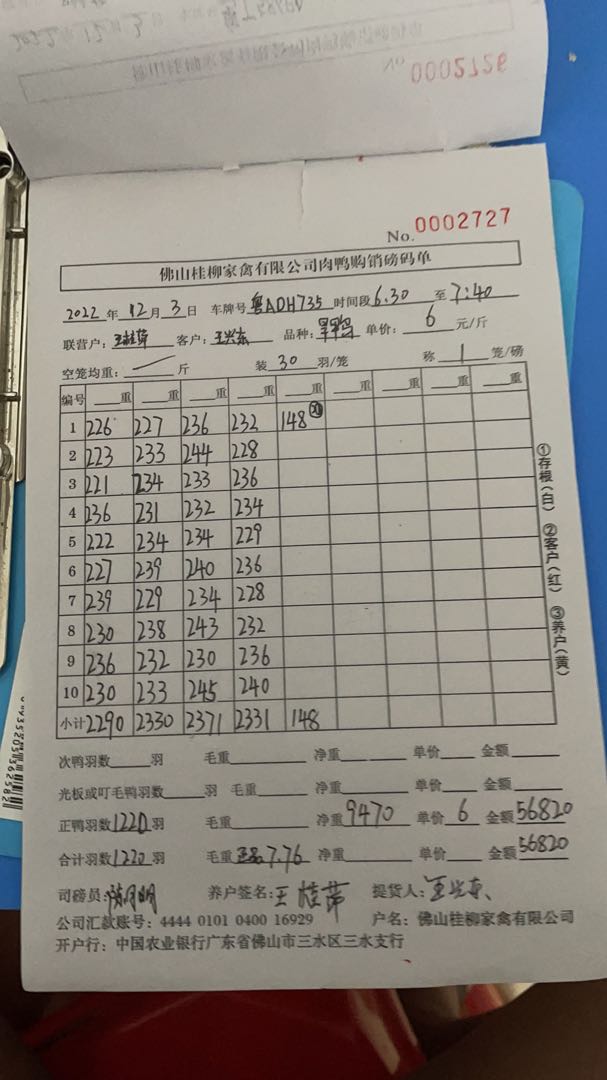 0002726
No. 0002727
佛山桂柳家禽有限公司肉鸭购销磅码单
2022年12月3日 车牌号粤ADH735时间段6.30至7:40
联营户:王桂萍 客户:王兴东 品种: 单价:6元/斤
空笼均重:斤 装30羽/笼 称1笼/磅
编号 重 重 重 重 重 重 重 重 重
1 226 227 236 232 148 20
2 223 233 244 228
3 221 234 233 236
4 236 231 232 234
5 222 234 234 229
6 227 239 240 236
7 239 229 234 228
8 230 238 243 232
9 236 232 230 236
10 230 233 245 240
小计 2290 2330 2371 2331 148
次鸭羽数 羽 毛重 净重 单价 金额
光板或叮毛鸭羽数 羽 毛重 净重 单价 金额
正鸭羽数1220羽 毛重 净重9470 单价6 金额56820
合计羽数1220羽 毛重 7.76 净重 单价 金额56820
司磅员: 养户签名:王桂萍 提货人:王兴东
公司汇款账号:4444 0101 0400 16929 户名:佛山桂柳家禽有限公司
开户行:中国农业银行广东省佛山市三水区三水支行
①存根(白) ②客户(红) ③养户(黄)